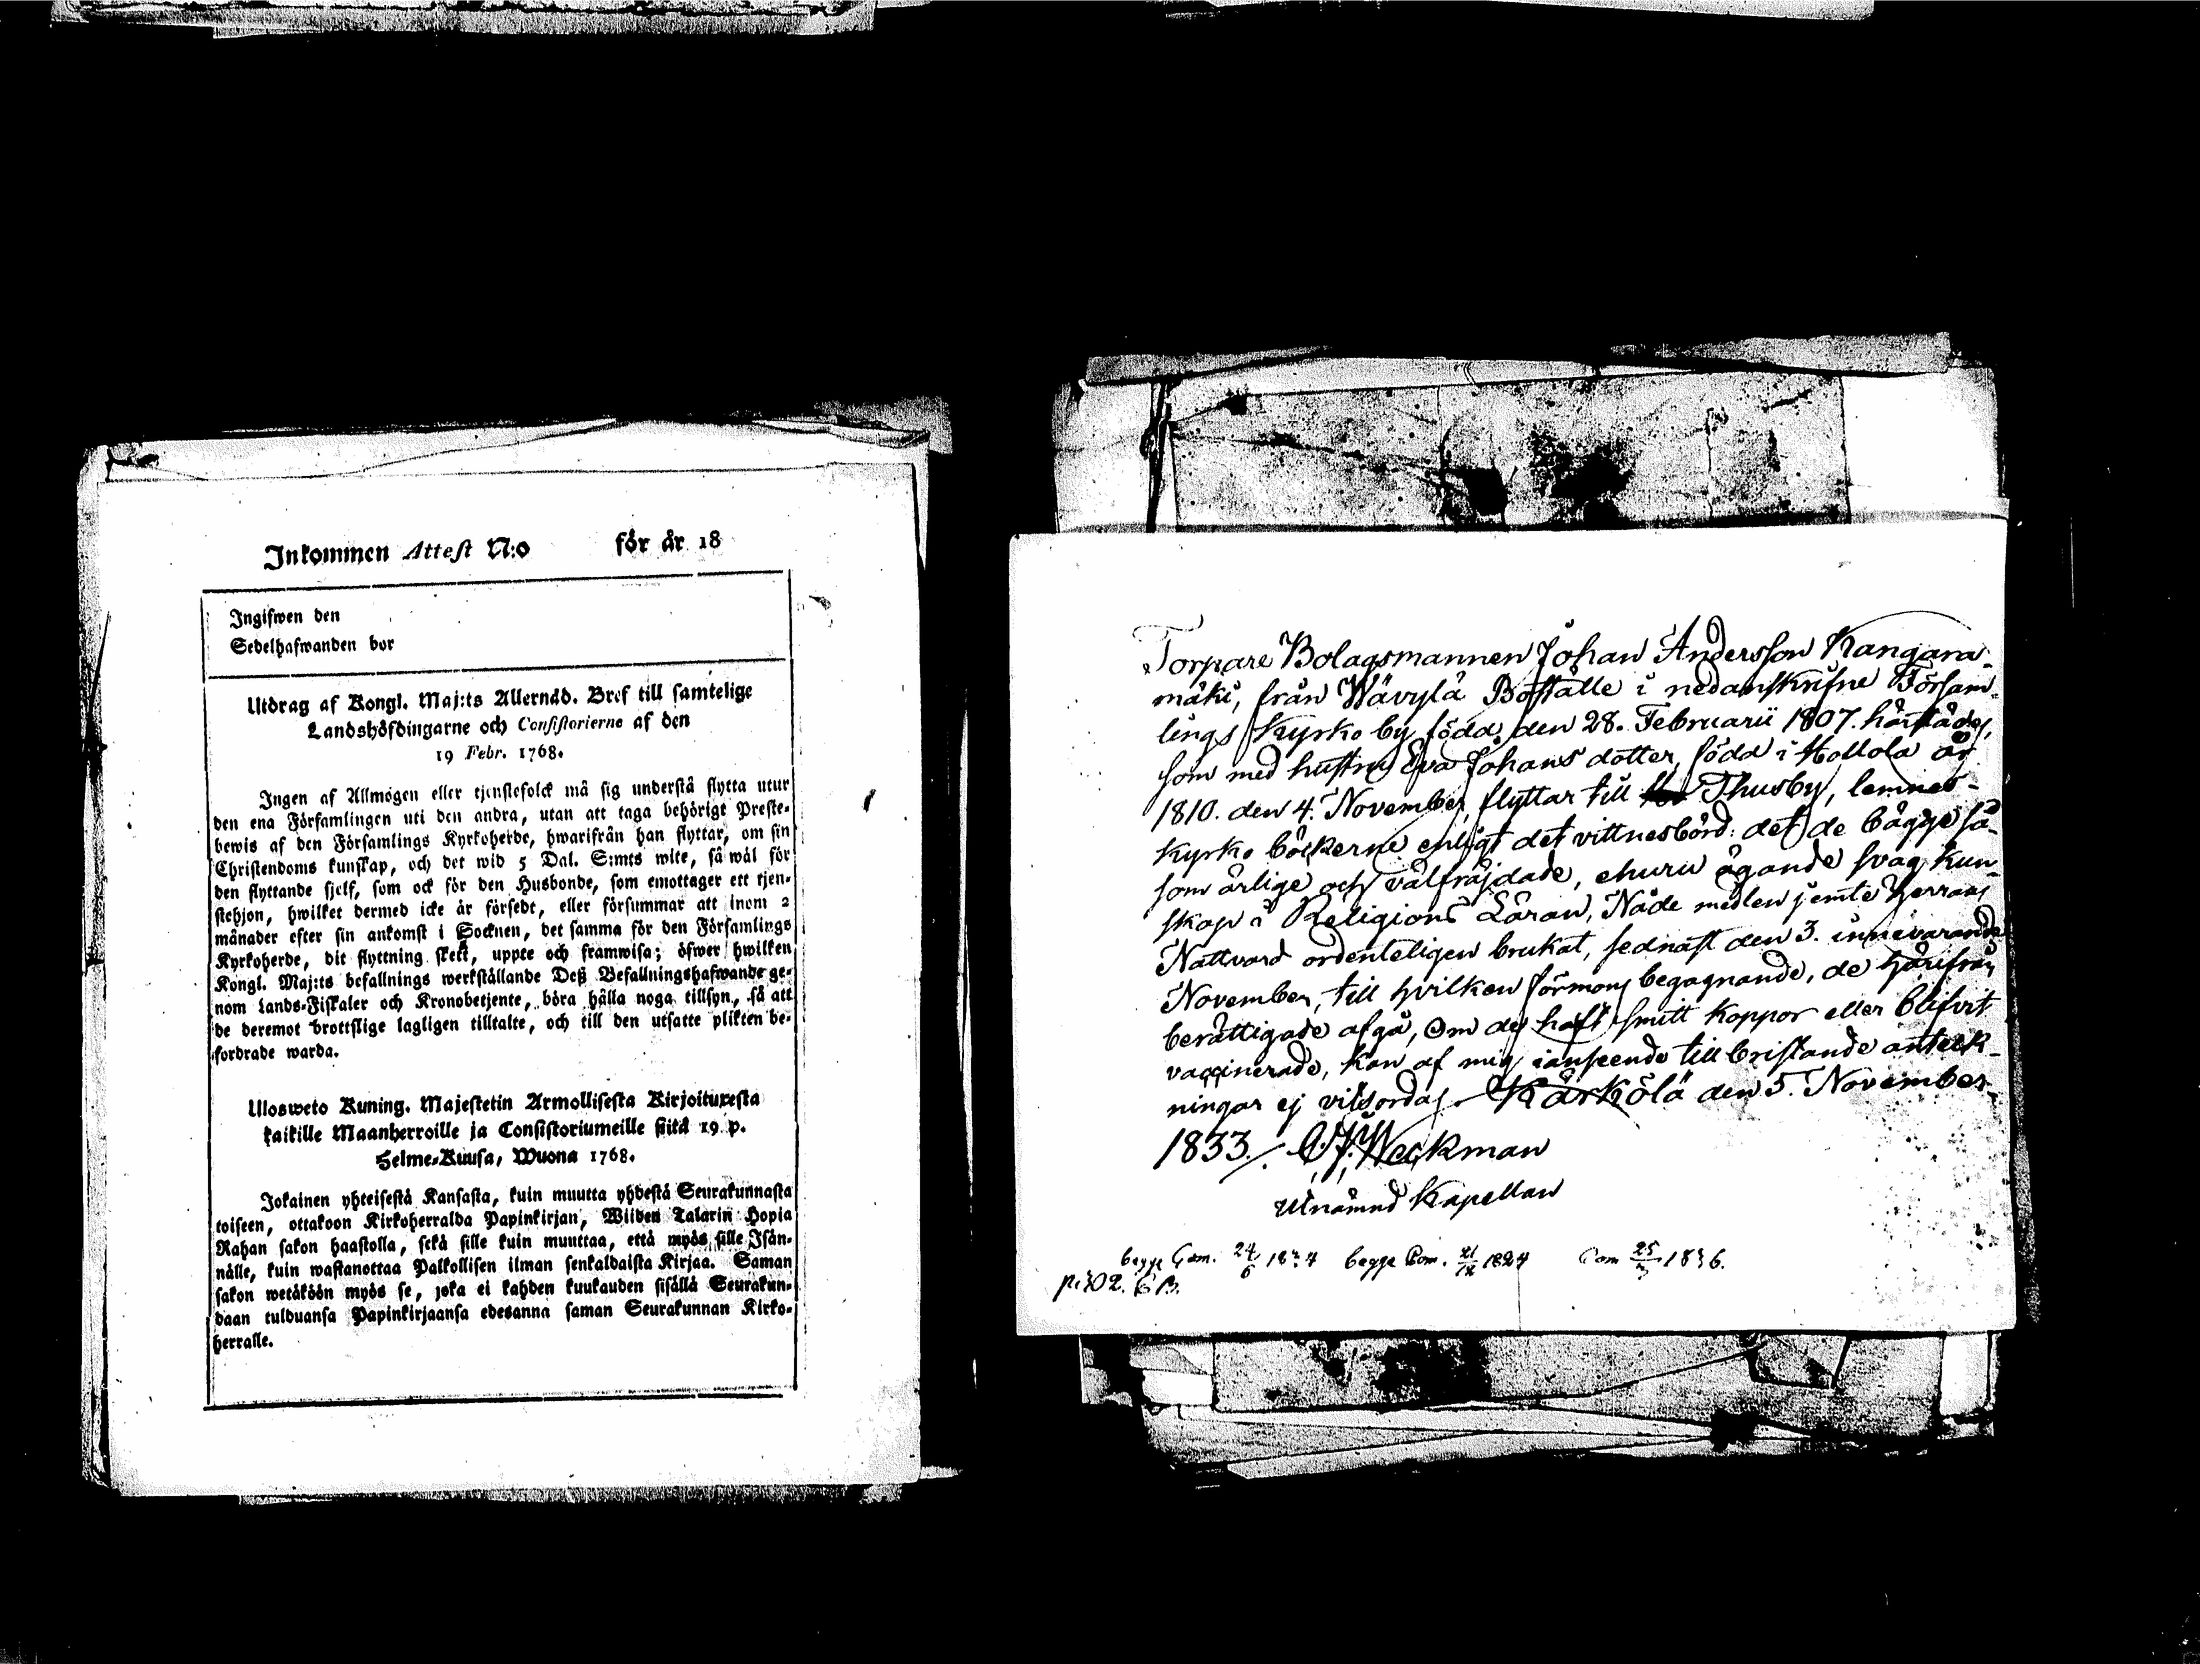 Inkommen Attest N:o för år 18
Ingifwen den
Sedelhafwanden bor
Utdrag af Kongl. Maj:ts Allernåd. Bref till samtelige
Landshöfdingarne och Consistorierne af den
19 Febr. 1768.
Ingen af Allmogen eller tjenstefolck må sig understå flytta utur
den ena Församlingen uti den andra, utan att taga behörigt Preste-
bewis af den Församlings Kyrkoherde, hwarifrån han flyttar, om sin
Christendoms kunskap, och det wid 5 Dal. S:mts wite, så wäl för
den flyttande sjelf, som ock för den Husbonde, som emottager ett tjen-
stehjon, hwilket dermed icke är försedt, eller försummar att inom 2
månader efter sin ankomst i Socknen, det samma för den Församlings
Kyrkoherde, dit flyttning skett, uppte och framwisa; öfwer hwilken
Kongl. Maj:ts befallnings werkställande Deß Befallningshafwande ge-
nom Lands-Fiskaler och Kronobetjente, böra hålla noga tillsyn, så att
de deremot brottslige lagligen tilltalte, och till den utsatte plikten be-
fordrade warda.
Ulosweto Kuning. Majestetin Armollisesta Kirjoituxesta
kaikille Maanherroille ja Consistoriumeille siitä 19 p.
Helme-Kuusa, Wuona 1768.
Jokainen yhteisestä Kansasta, kuin muutta yhdestä Seurakunnasta
toiseen, ottakoon Kirkoherralda Papinkirjan, Wiiden Talarin Hopia
Rahan sakon haastolla, sekä sille kuin muuttaa, että myös sille Isän-
nälle, kuin wastanottaa Palkollisen ilman senkaldaista Kirjaa. Saman
sakon wetäköön myös se, joka ei kahden kuukauden sisällä Seurakun-
daan tulduansa Papinkirjaansa edesanna saman Seurakunnan Kirko-
herralle.
Torpare Bolagsmannen Johan Andersson Kangara-
mäki, från Wävylä Boställe i nedanskrifne Försam-
lings Kyrko by född den 28. Februarii 1807. härstädes,
som med hustru Eva Johans dotter, född i Hollola år
1810. den 4. November, flyttar till Thusby, lemnes -
kyrko böckerne enligt det vittnesbörd: det de bägge så-
som ärlige och välfräjdade, ehuru ägande svag kun-
skap i Religions Läran, Nåde medlen jemte Herrans
Nattvard ordenteligen brukat, sednast den 3. innevarande
November, till hvilken förmons begagnande, de härifrån
berättigade afgå, Om de haft smitt koppor eller blifvit
vaccinerade, kan af mig i anseende till bristande anteck-
ningar ej vitsordas. Kärkölä den 5. November
1833. /. Weckman
Utnämnd Kapellan
begge Com. 24/6 18 4 begge Com. 21/IX 1824 Com 25/3 1836.